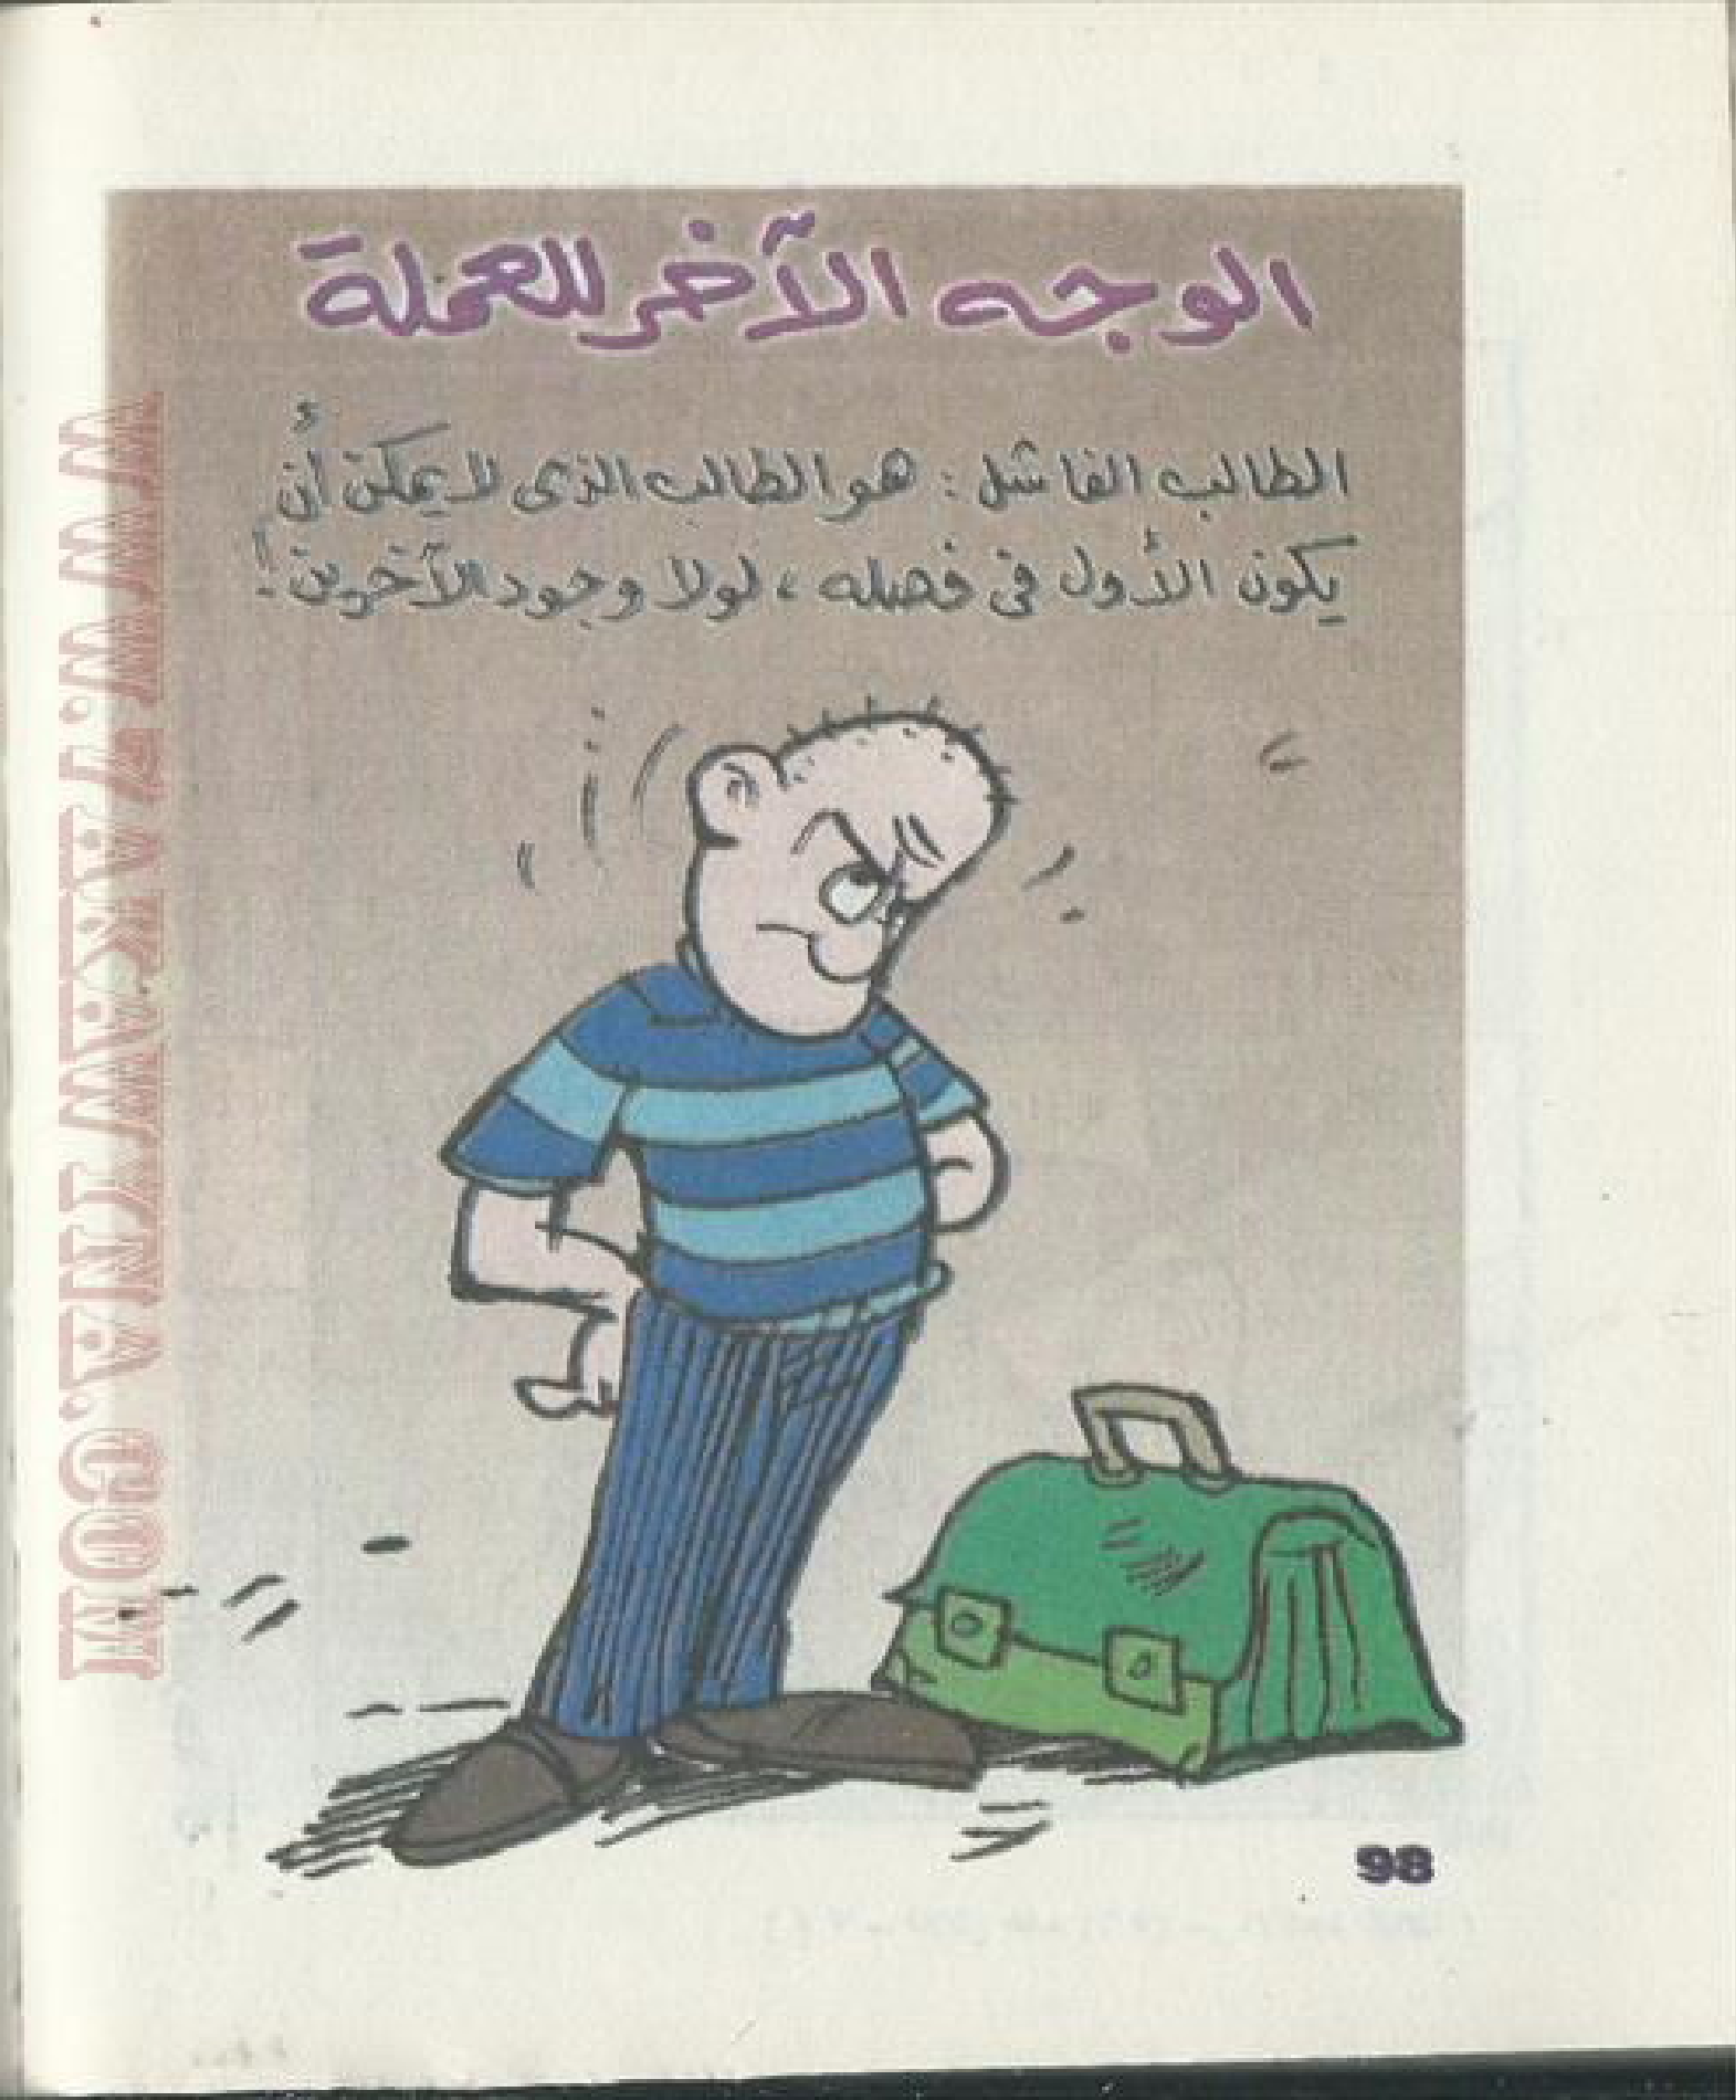 الوجه الآخر للعملة
الطالب الفاشل : هو الطالب الذى لا يمكن أن
يكون الأول فى فصله ، لولا وجود الآخرين !!
98